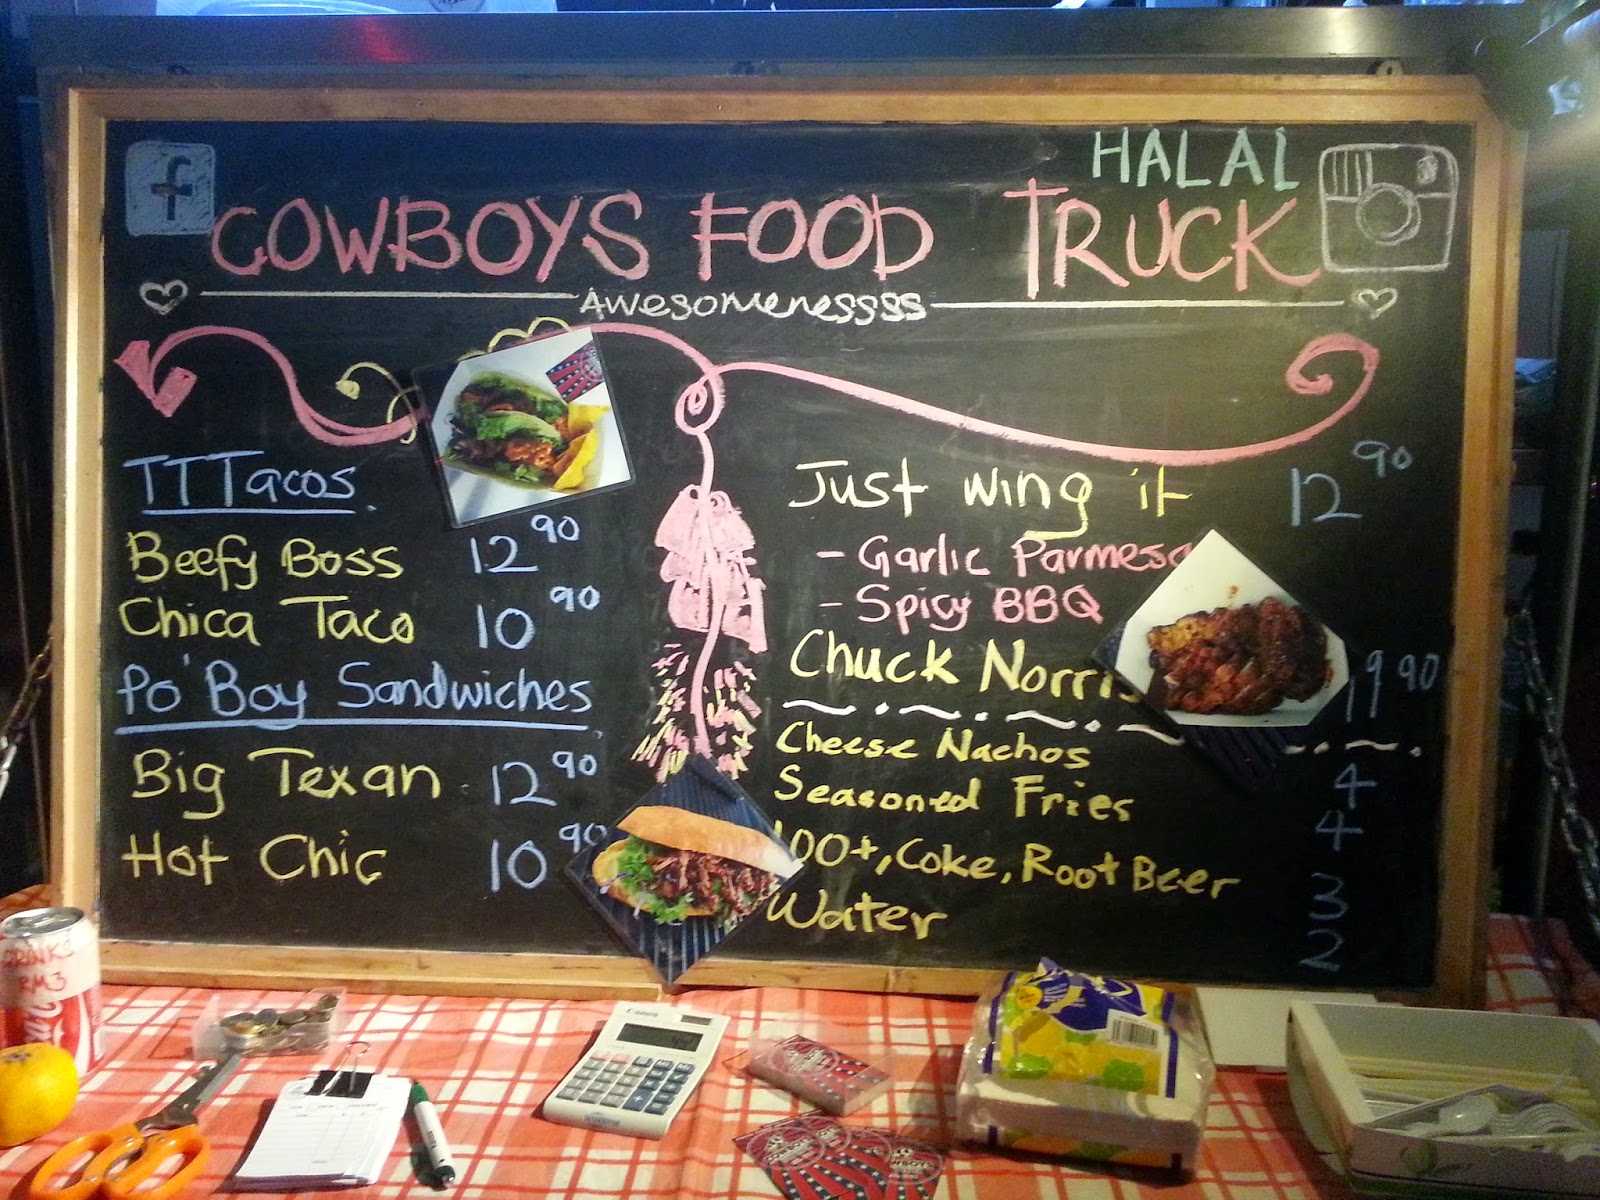 HALAL
f
COWBOYS FOOD TRUCK
Awesomenessss
TTTacos
Beefy Boss 12 90
Chica Taco 10 90
Po'Boy Sandwiches
Big Texan 12 90
Hot Chic 10 90
Just wing it 12 90
- Garlic Parmesa
- Spicy BBQ
Chuck Norris 19 90
Cheese Nachos 4
Seasoned Fries 4
100+, Coke, Root Beer 3
Water 2
DRINKS
RM3
Canon